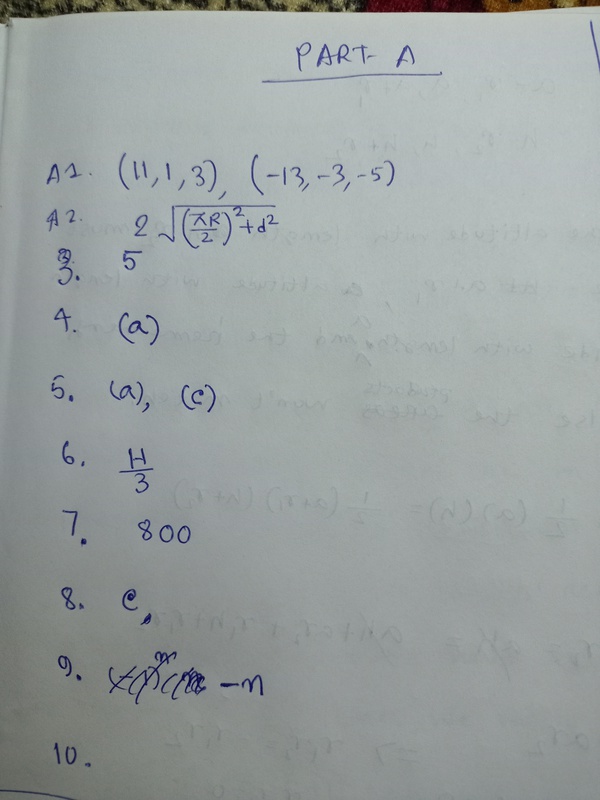 PART- A
A1. (11, 1, 3), (-13, -3, -5)
A2. 2 √((πR/2)² + d²)
3. 5
4. (a)
5. (a), (c)
6. H/3
7. 800
8. C.
9. -n
10.